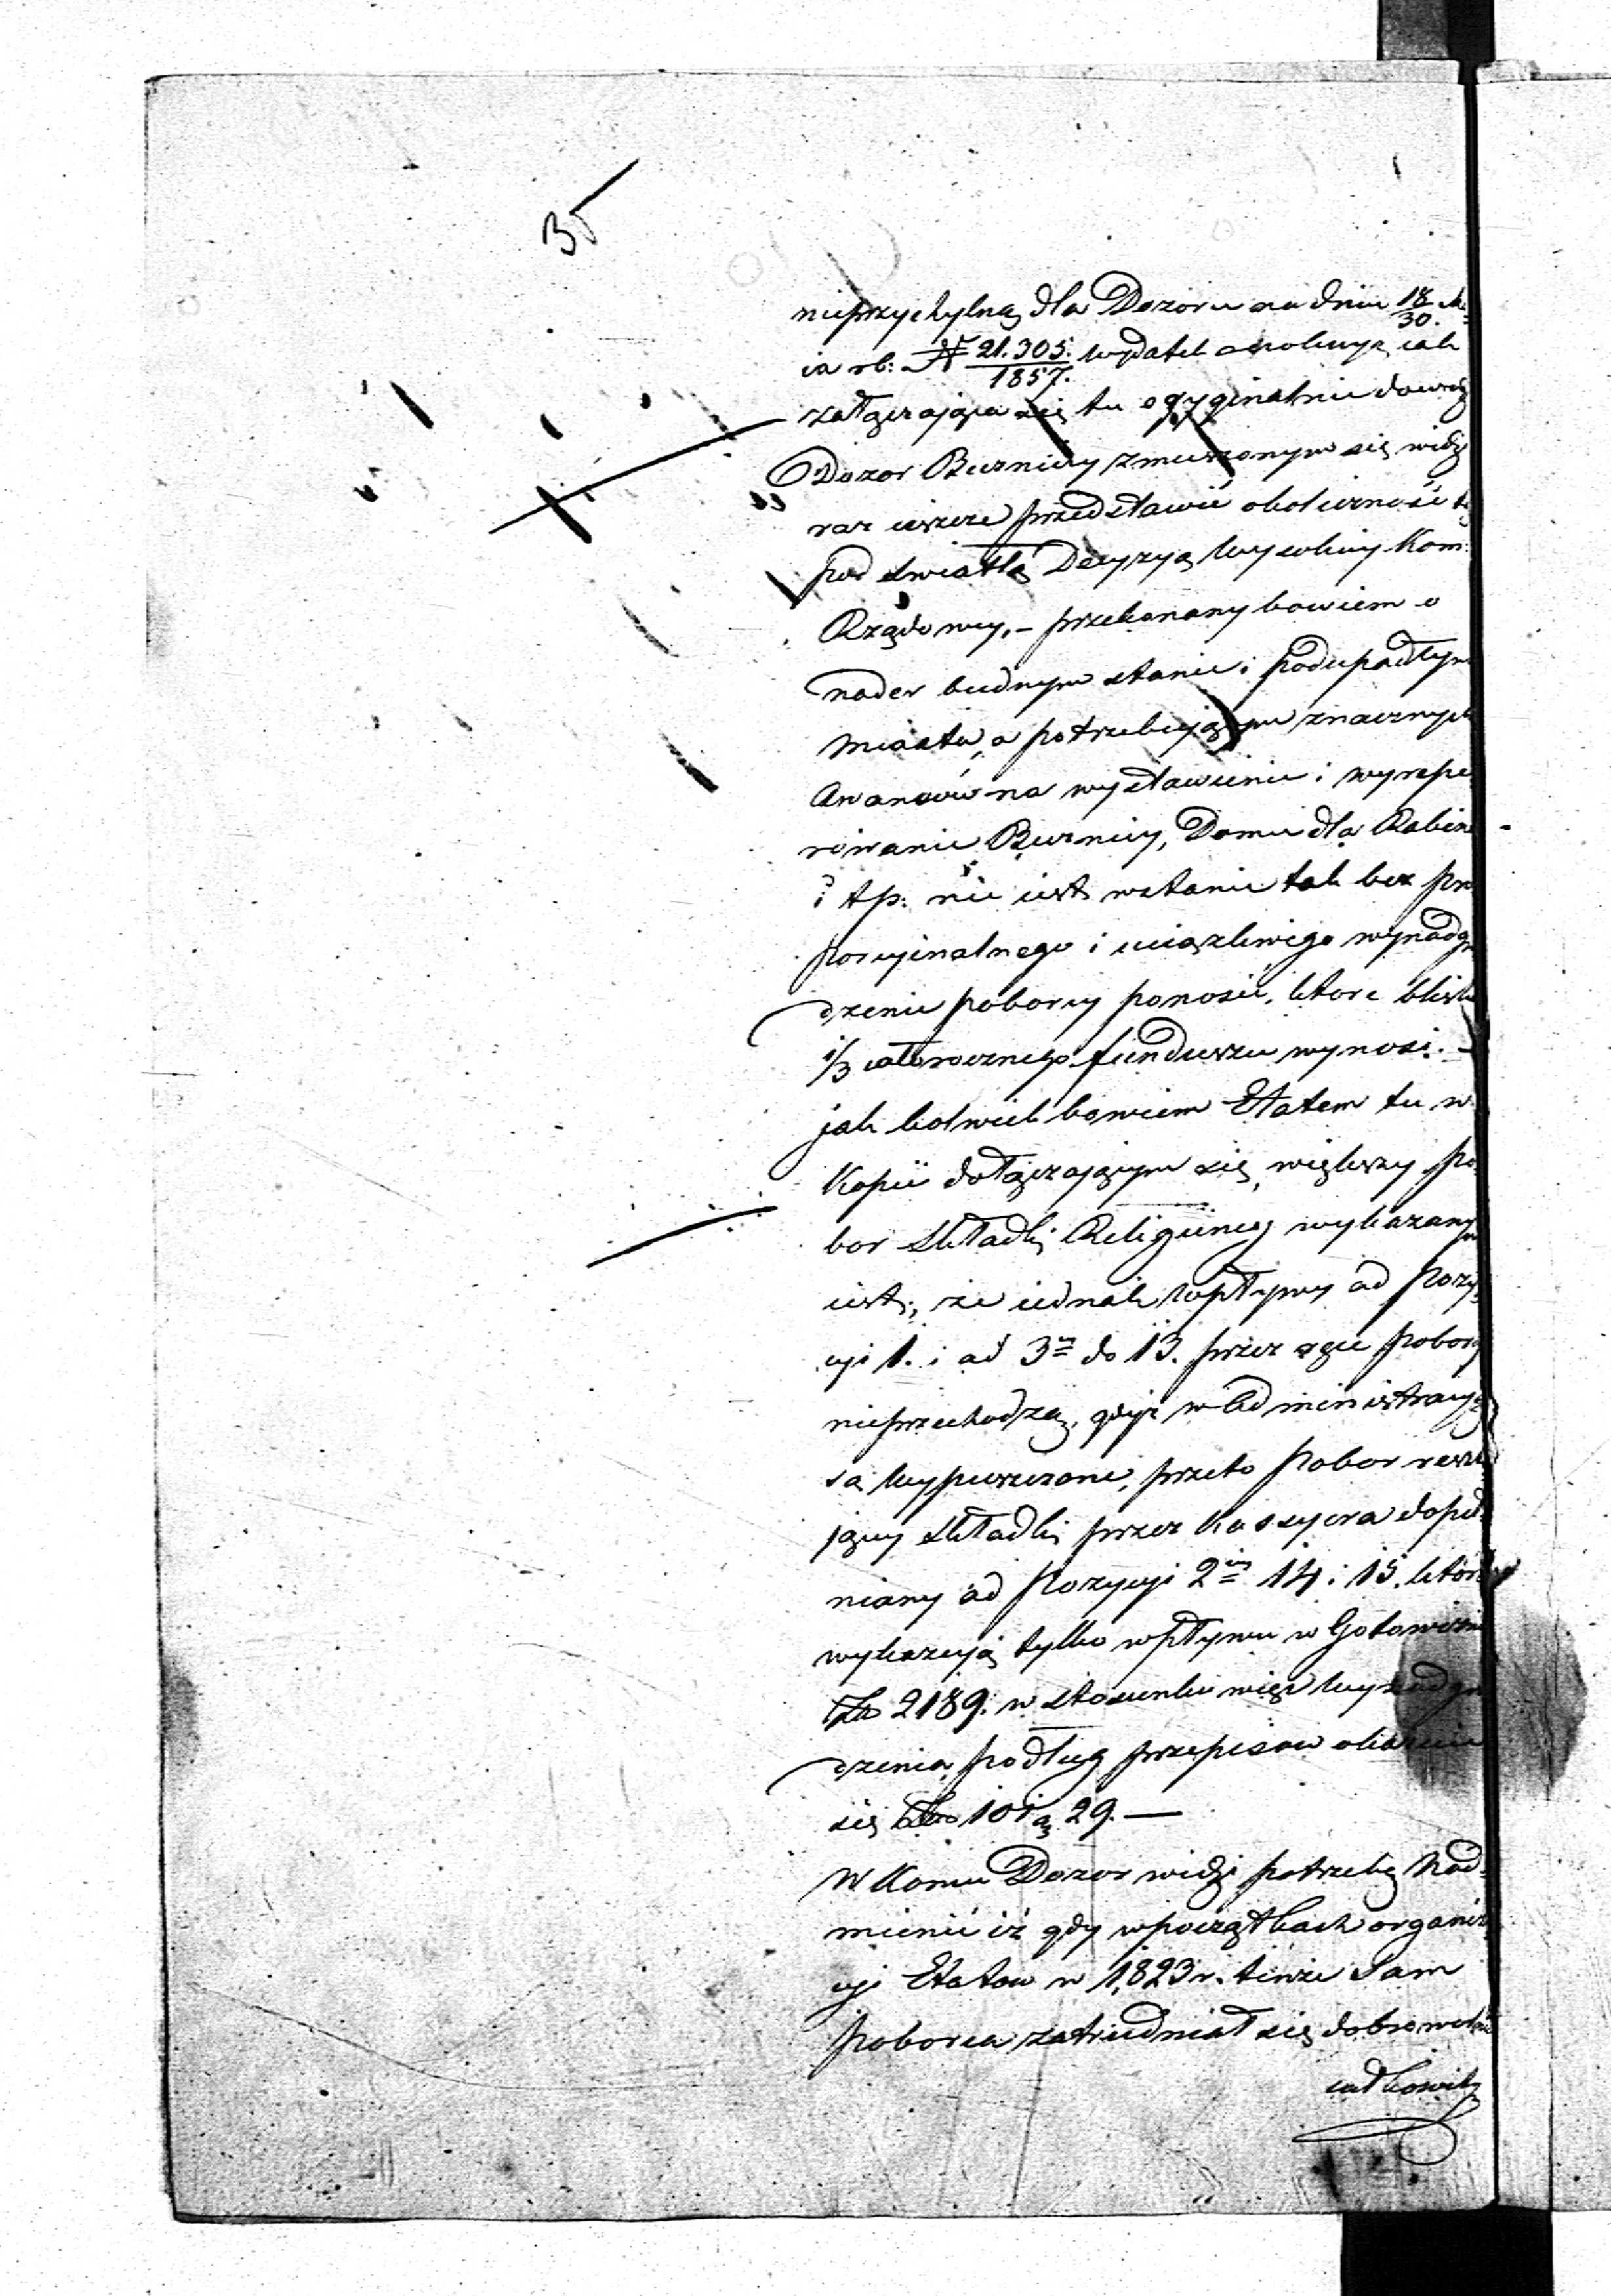 35
nieprzychylną dla Dozoru na dniu 18/30. Ma=
ia rb: N 21.305./1857. wydała jak
załączająca się tu orgyginalnie dowodzi
Dozor Buznicy zmuszonym się widzi
raz ieszcze przedstawić okoliczność tę
pod światłą Decyzyą Wysokiey Kom:
Rządowey, – przekonany bowiem o
nader biednym stanie i podupadłym
Miasta, a potrzebującym znacznych
Awansów na wystawienie i wyrepe
rowanie Buznicy, Domu dla Rabina
i tp. nie iest wstanie tak bez pro
porcyinalnego i uciążliwego wynadgr
dzenie poborcy ponosić, które blisko
1/3 całorocznego funduszu wynosi. –
jak kolwiek bowiem Etatem tu w
Kopii dołączającym się, większy po=
bor składki Religiiney wykazany
iest; że iednak wpływy od Pozy=
cyi 1. i od 3ey do 13. przez ręce poborcy
nieprzechodzą, gdyż w Administracyą
są wypuszczone, przeto Pobor resztu
jący składki przez Kassyera dopeł=
niany od Pozycyi 2ey 14 i 15. które
wykazują tylko wpływu w Gotowiznie
Zło 2189. w stosunku więc wynadgro
dzenia podług przepisow okazuie
się Zło 109 g 29. —
W Koncu Dozor widzi potrzebę Nad=
mienić iż gdy wpoczątkach organiza
cyi Etatow w 1823 r. tenże Sam
Poborca zatrudniał się dobrowolnie
całkowitą